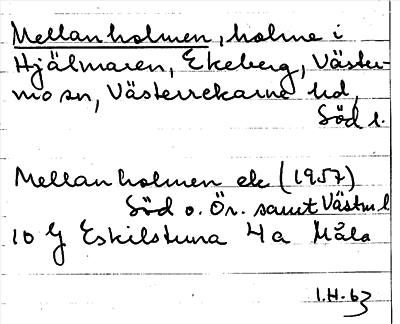 Mellanholmen, holme i
Hjälmaren, Ekeberg, Väster-
mo sn, Västerrekarne hd,
Söd l.
Mellanholmen ek (1957)
Söd o. Ör. samt Västml
10 G Eskilstuna 4a Måla
I.H-63